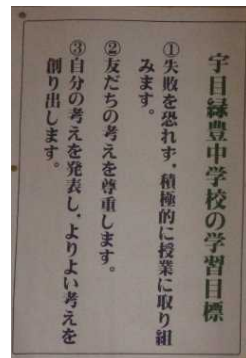 宇目緑豊中学校の学習目標
①失敗を恐れず，積極的に授業に取り組
みます。
②友だちの考えを尊重します。
③自分の考えを発表し，よりよい考えを
創り出します。